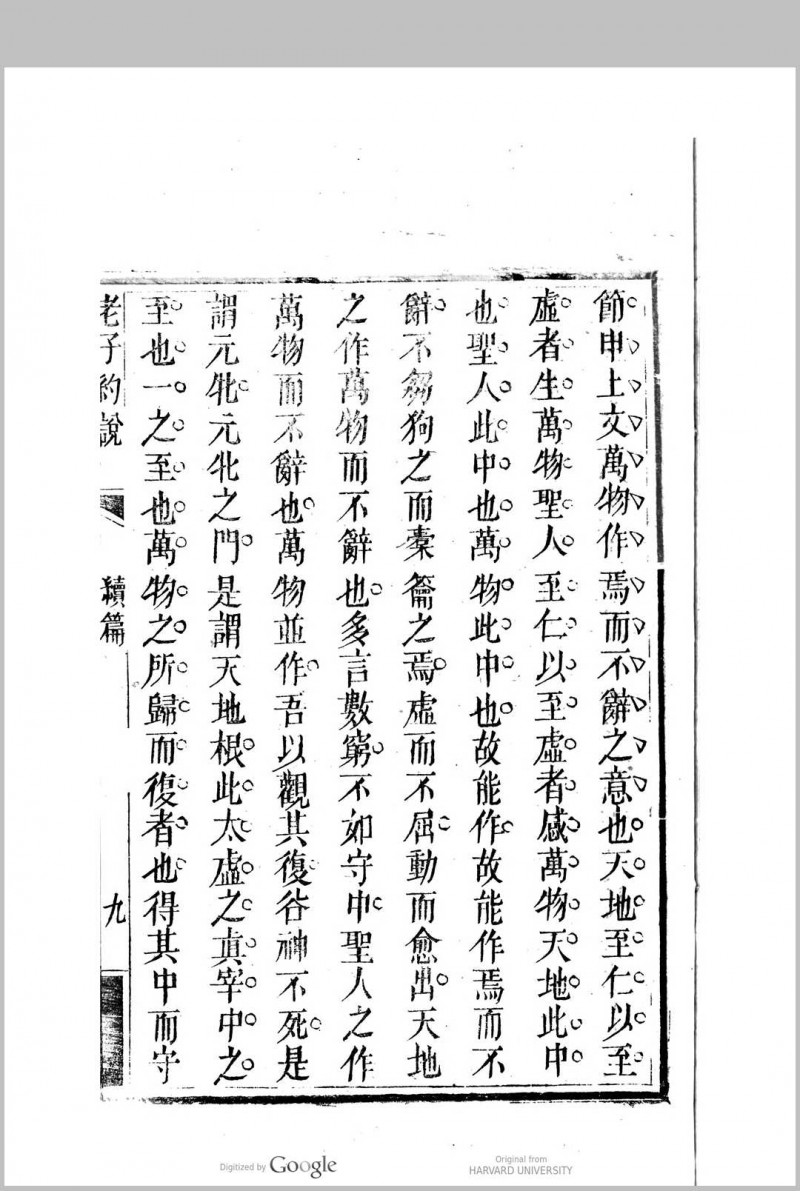 節申上文萬物作焉而不辭之意也天地至仁以至
虛者生萬物聖人至仁以至虛者感萬物天地此中
也聖人此中也萬物此中也故能作故能作焉而不
辭不芻狗之而橐籥之焉虛而不屈動而愈出天地
之作萬物而不辭也多言數窮不如守中聖人之作
萬物而不辭也萬物並作吾以觀其復谷神不死是
謂元牝元牝之門是謂天地根此太虛之真宰中之
至也一之至也萬物之所歸而復者也得其中而守
老子約說 續篇 九
Digitized by Google
Original from
HARVARD UNIVERSITY